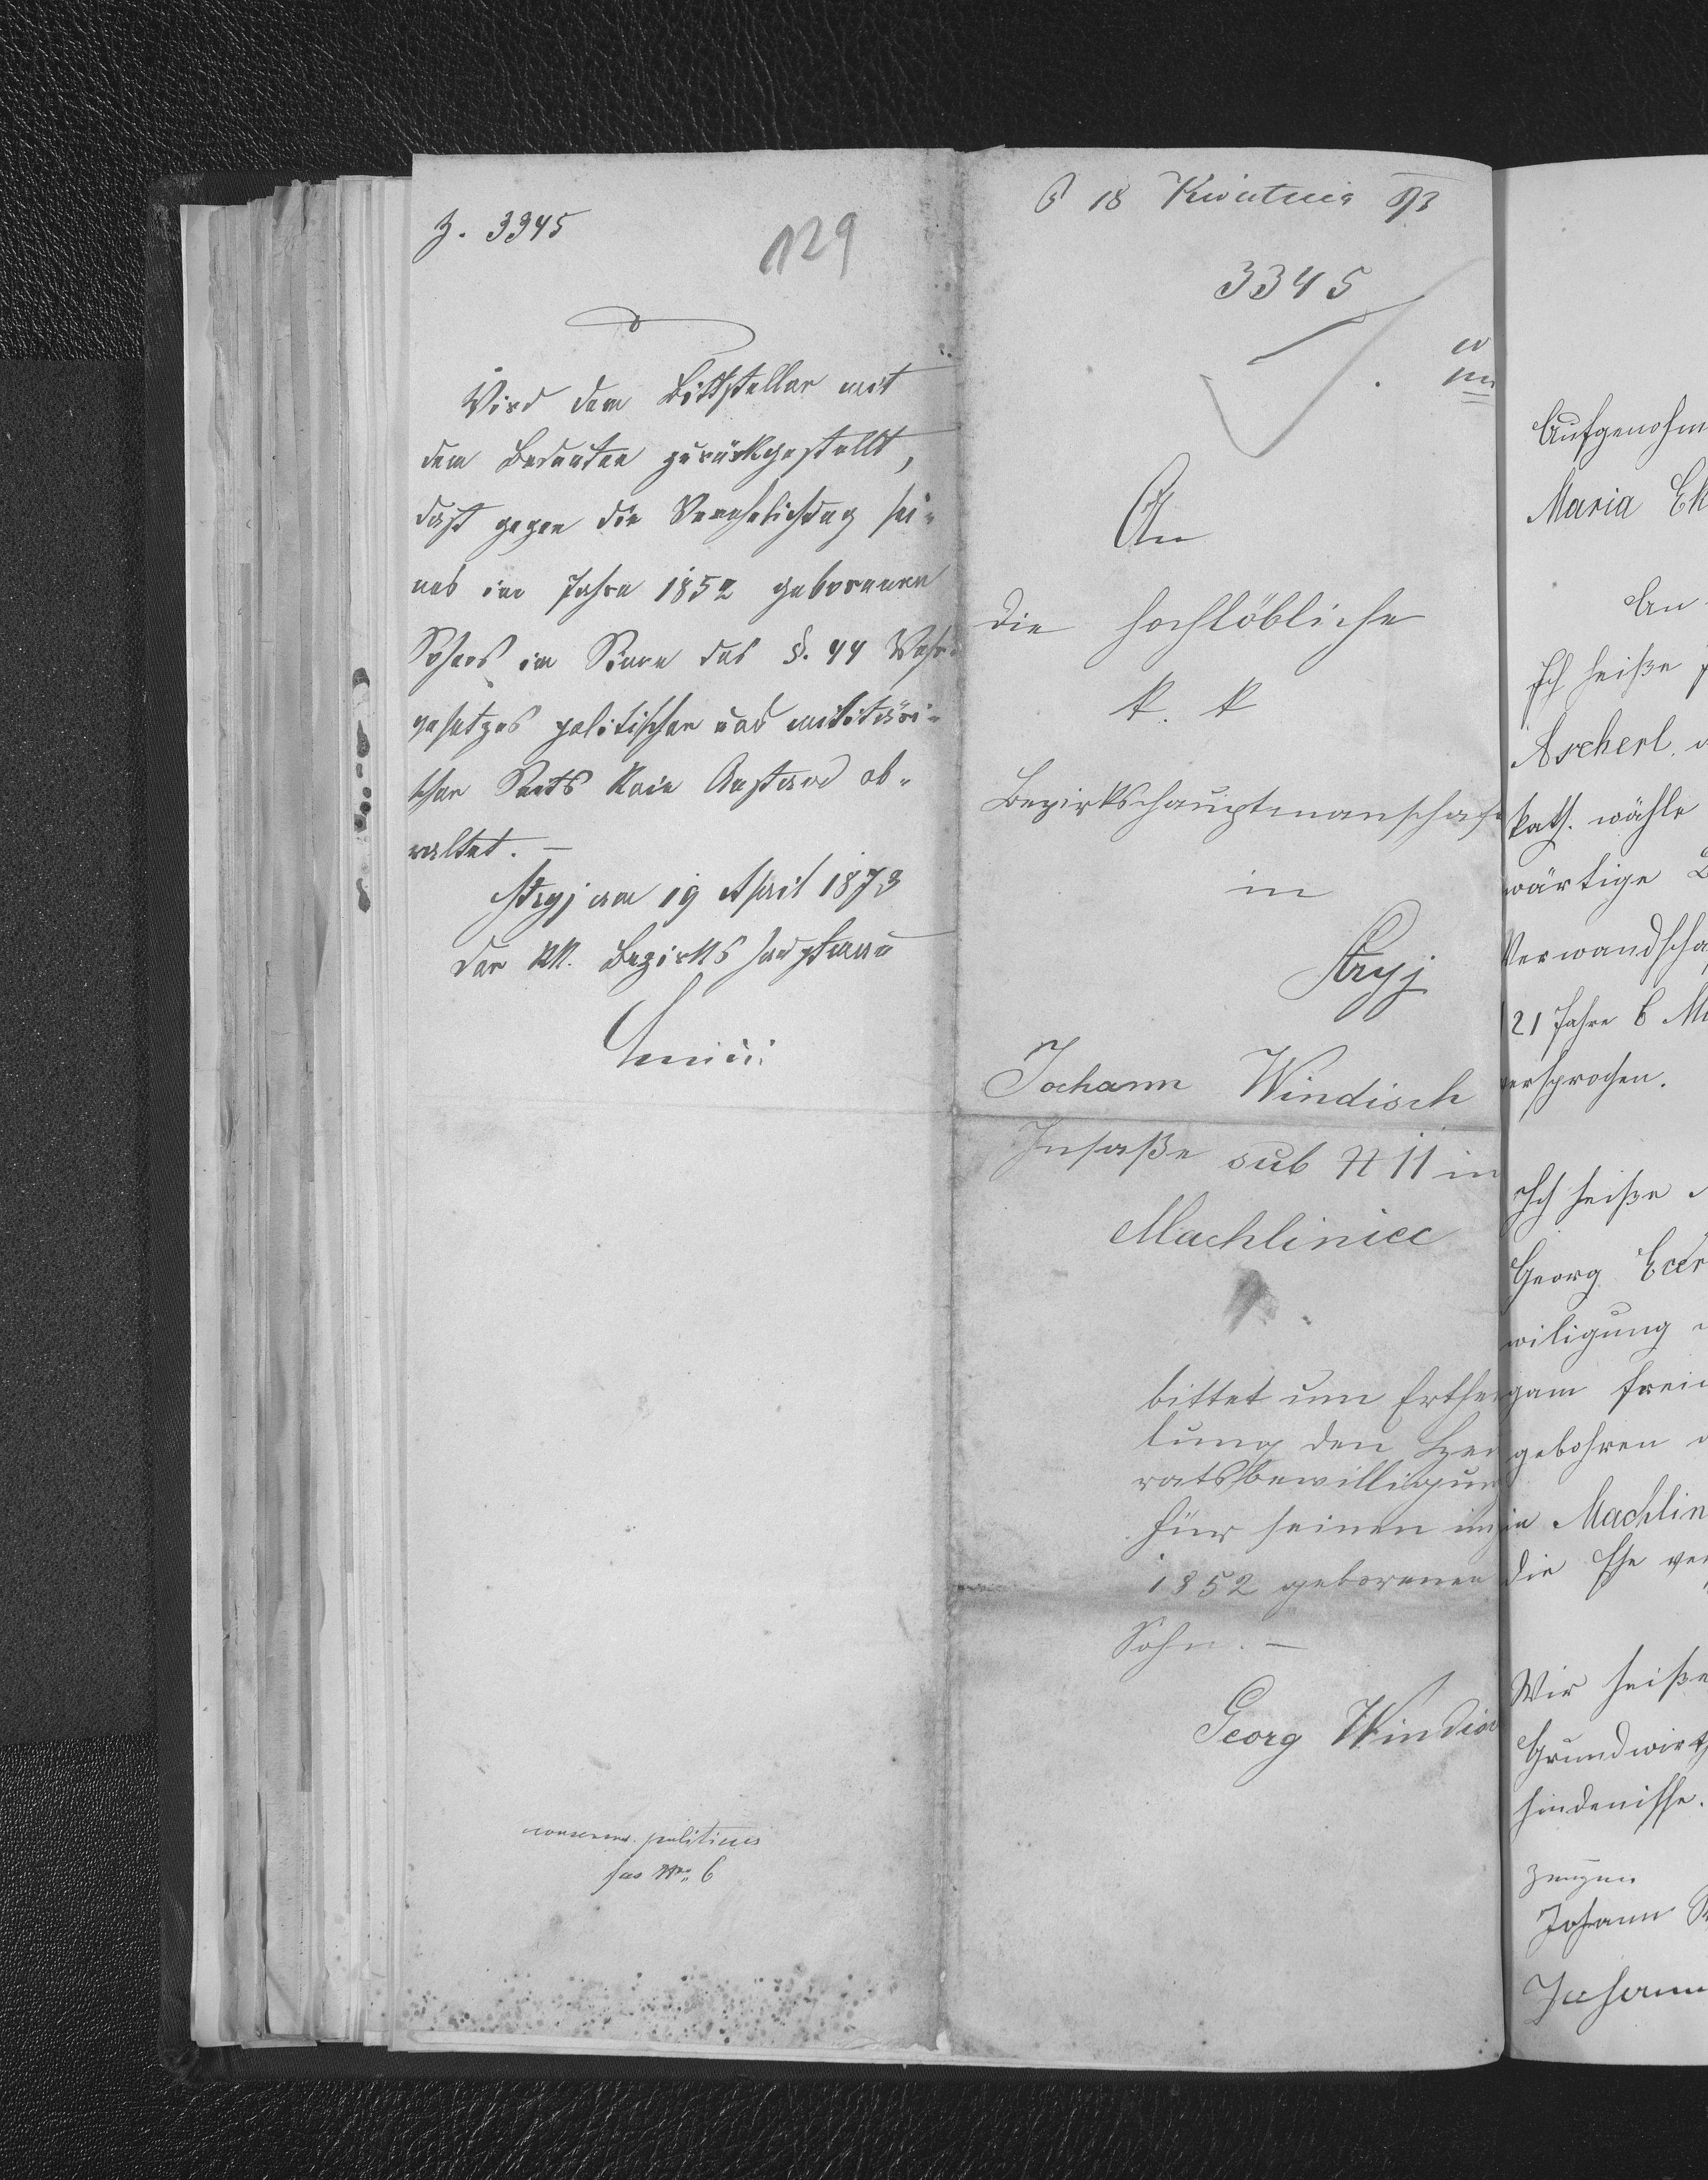 Z. 3345
129
Wird dem Bittsteller mit
dem Bedeuten zurückgestellt,
daß gegen die Verehelichung sei-
nes im Jahre 1852 geborenen
Sohnes im Sinne des §. 44 Wehr-
gesetzes politischer und militäri-
scher Seits kein Anstand ob-
waltet. —
Stryj am 19 April 1873
Der kk. Bezirkshauptmann
politicus
No 6
18 Kwietnia 873
3345
An
die hochlöbliche
k. k
Bezirkshauptmanschaf
in
Stryj
Johann Windisch
Insaße sub N 11 in
Machliniec
bittet um Erthei
lung den Hei
ratsbewilligung
für seinen im J
1852 geborenen
Sohn. —
Georg Windisc
Aufgenohm
Maria Ek
An
Ich heiße
Ascherl
kath. wähle
wärtige
Verwandscha
21 Jahre 6 Mo
versprochen.
Ich heiße
Georg Ecer
williguug
gam frei
gebohren
in Machlin
die Ehe ver
Wir heiße
Grundwirth
hindernisse.
Zeugen
Johann
Johann